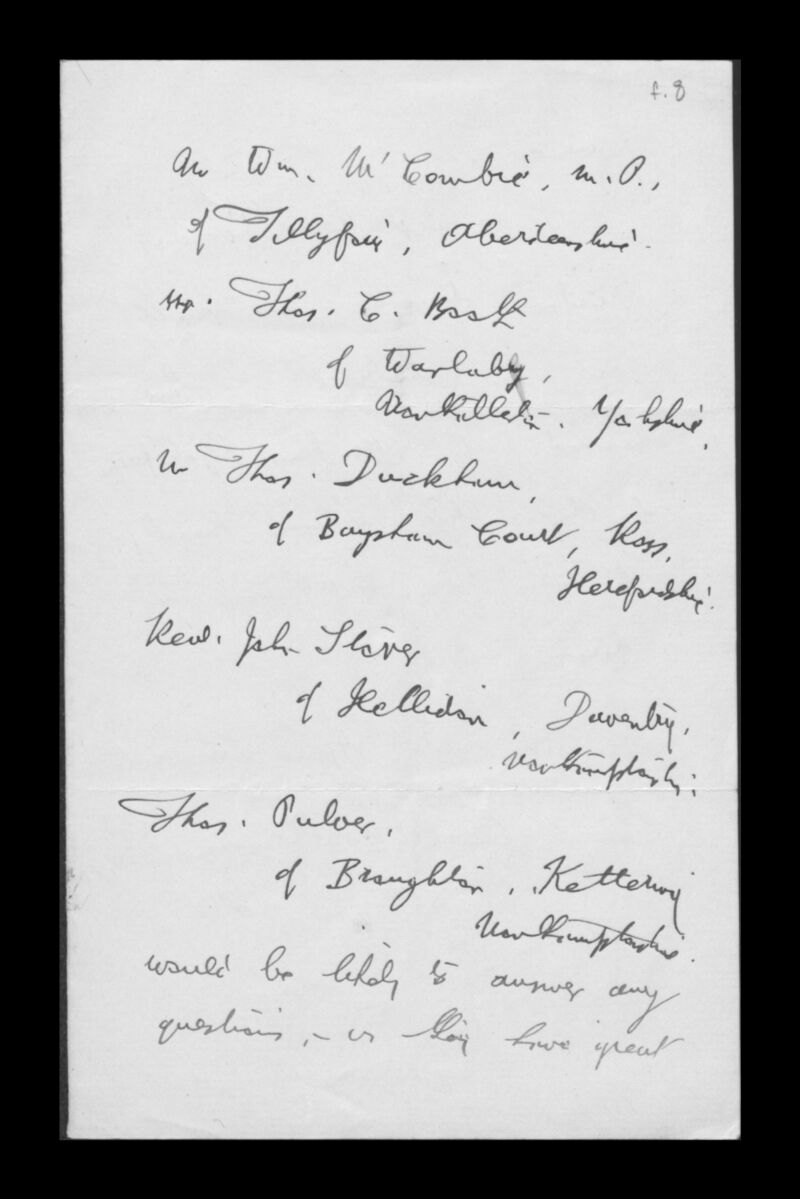 f. 8
Mr Wm. McCombie, M.P.,
of Tillyfour, Aberdeenshire.
Mr. Thos. C. Booth
of Warlaby,
Northallerton, Yorkshire,
Mr Thos. Duckham,
of Baysham Court, Ross,
Herefordshire.
Revd. John Storer
of Hellidon, Daventry,
Northamptonshire
Thos. Pulver,
of Broughton, Kettering
Northamptonshire.
would be likely to answer any
questions, – or they have great